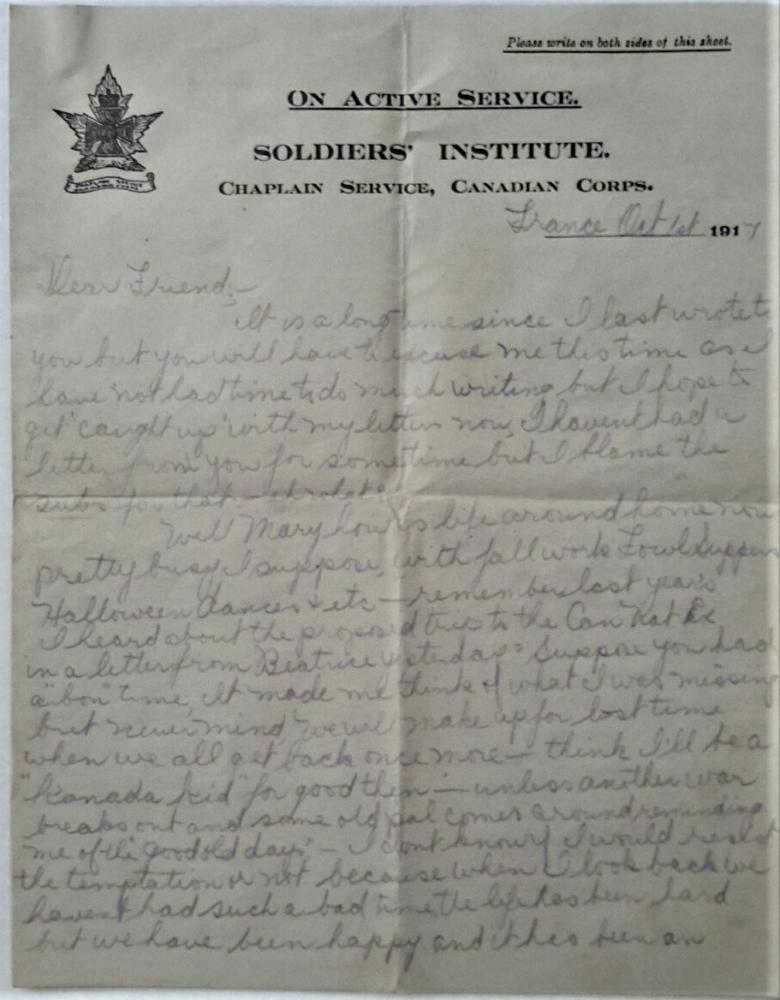 Please write on both sides of this sheet.
ON ACTIVE SERVICE.
SOLDIERS' INSTITUTE.
CHAPLAIN SERVICE, CANADIAN CORPS.
France Oct 1st 1917
Dear Friend;-
It is a long time since I last wrote to
you but you will have to excuse me this time as I
have not had time to do much writing but I hope to
get "caught up" with my letters now, I havent had a
letter from you for some time but I blame the
subs for that -
Well Mary how is life around home now
pretty busy I suppose, with fall work Fowl Suppers
Halloween dances & etc - remember last year's
I heard about the proposed trip to the Can Nat Ex
in a letter from Beatrice yesterday. Suppose you had
a "bon" time, It made me think of what I was missing
but never mind we will make up for lost time
when we all get back once more - think I'll be a
"Kanada kid" for good then - unless another war
breaks out and some old pal comes around reminding
me of the "good old days" - I dont know if I would resist
the temptation or not because when I look back we
havent had such a bad time the life has been hard
but we have been happy and it has been an